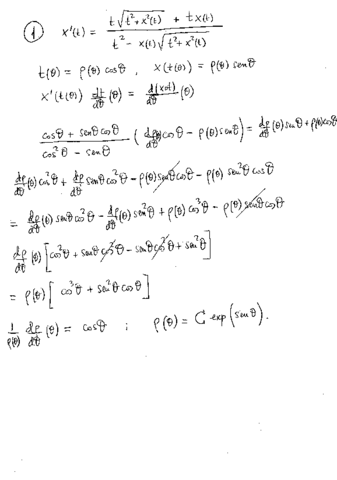 ① x'(t) = (t√(t²+x²(t)) + t x(t)) / (t² - x(t)√(t²+x²(t)))
t(θ) = ρ(θ) cosθ , x(t(θ)) = ρ(θ) senθ
x'(t(θ)) dt/dθ (θ) = d(x∘t)/dθ (θ)
(cosθ + senθ cosθ)/(cos²θ - senθ) (dρ/dθ cosθ - ρ(θ) senθ) = dρ/dθ (θ) senθ + ρ(θ) cosθ
dρ/dθ (θ) cos²θ + dρ/dθ senθ cos²θ - ρ(θ) senθ cosθ - ρ(θ) sen²θ cosθ
= dρ/dθ (θ) senθ cos²θ - dρ/dθ (θ) sen²θ + ρ(θ) cos³θ - ρ(θ) senθ cosθ
dρ/dθ (θ) [cos²θ + senθ cos²θ - senθ cos²θ + sen²θ]
= ρ(θ) [cos³θ + sen²θ cosθ]
1/ρ(θ) dρ/dθ (θ) = cosθ ; ρ(θ) = C exp(senθ).